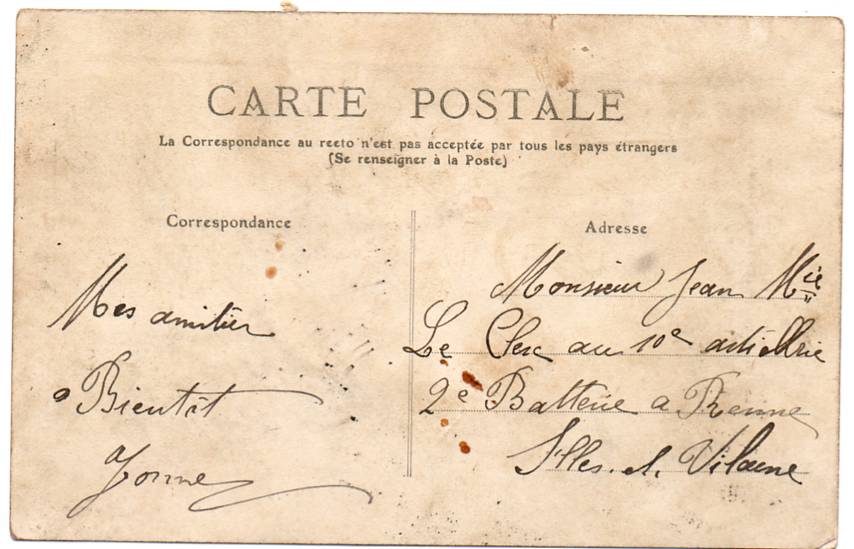 CARTE POSTALE
La Correspondance au recto n'est pas acceptée par tous les pays étrangers
(Se renseigner à la Poste)
Correspondance
Mes amitiés
a Bientôt
Yonne
Adresse
Monsieur Jean Mie
Le Clerc au 10e artillerie
2e Batterie a Renne
Illes. et. Vilaine